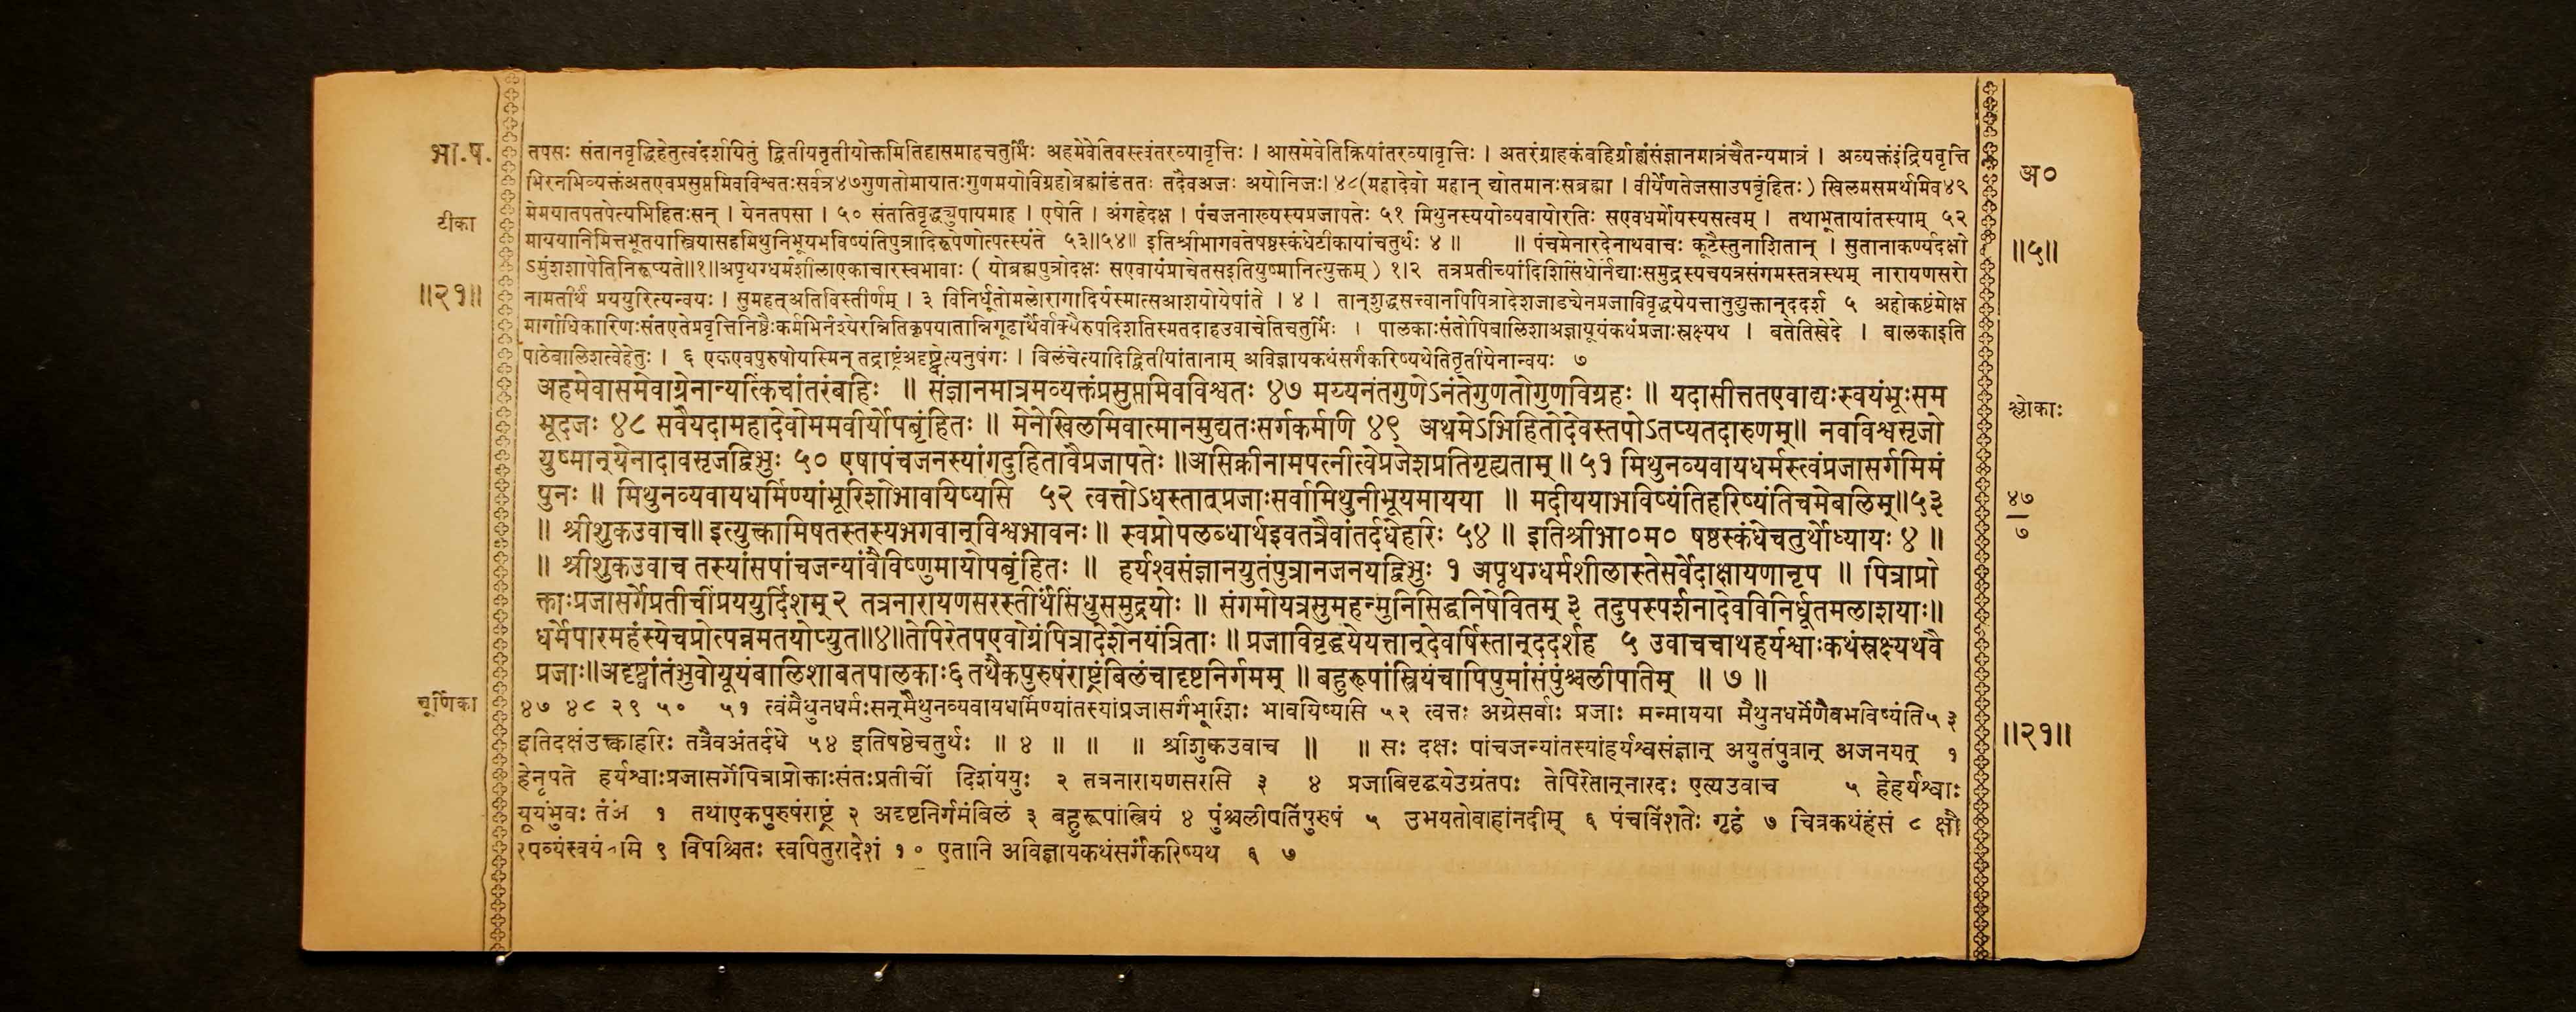 भा.ष.
तपसः संतानवृद्धिहेतुत्वंदर्शयितुं द्वितीयतृतीयोक्तमितिहासमाहचतुर्भिः अहमेवेतिवस्त्वंतरव्यावृत्तिः । आसमेवेतिक्रियांतरव्यावृत्तिः । अतरंग्राहकंबहिर्ग्राह्यंसंज्ञानमात्रंचैतन्यमात्रं । अव्यक्तंइंद्रियवृत्ति
अ०
भिरनभिव्यक्तंअतएवप्रसुप्तमिवविश्वतःसर्वत्र४७गुणतोमायातःगुणमयोविग्रहोब्रह्मांडंततः तदैवअजः अयोनिजः। ४८(महादेवो महान् द्योतमानःसब्रह्मा । वीर्येणतेजसाउपबृंहितः) खिलमसमर्थमिव४९
टीका
मेमयातपतपेत्यभिहितःसन् । येनतपसा । ५० संततिवृद्ध्युपायमाह । एषेति । अंगहेदक्ष । पंचजनाख्यस्यप्रजापतेः ५१ मिथुनस्ययोव्यवायोरतिः सएवधर्मोयस्यसत्वम् । तथाभूतायांतस्याम् ५२
माययानिमित्तभूतयास्त्रियासहमिथुनिभूयभविष्यंतिपुत्रादिरूपेणोत्पत्स्यंते ५३॥५४॥ इतिश्रीभागवतेषष्ठस्कंधेटीकायांचतुर्थः ४ ॥ ॥ पंचमेनारदेनाथवाचः कूटैस्तुनाशितान् । सुतानाकर्ण्यदक्षो
॥५॥
ऽमुंशशापेतिनिरूप्यते॥१॥अपृथग्धर्मशीलाएकाचारस्वभावाः ( योब्रह्मपुत्रोदक्षः सएवायंप्राचेतसइतियुष्मानित्युक्तम् ) १।२ तत्रप्रतीच्यांदिशिसिंधोर्नद्याःसमुद्रस्यचयत्रसंगमस्तत्रस्थम् नारायणसरो
॥२१॥
नामतीर्थं प्रययुरित्यन्वयः । सुमहत्अतिविस्तीर्णम् । ३ विनिर्धूतोमलोरागादिर्यस्मात्सआशयोयेषांते । ४ । तान्शुद्धसत्त्वानपिपित्रादेशजाड्येनप्रजाविवृद्धयेयत्तानुद्युक्तान्ददर्श ५ अहोकष्टंमोक्ष
मार्गाधिकारिणःसंतएतेप्रवृत्तिनिष्ठैःकर्मभिर्नश्येरन्नितिकृपयातान्निगूढार्थैर्वाक्यैरुपदिशतिस्मतदाहउवाचेतिचतुर्भिः । पालकाःसंतोपिबालिशाअज्ञायूयंकथंप्रजाःस्रक्ष्यथ । बतेतिखेदे । बालकाइति
पाठेबालिशत्वेहेतुः । ६ एकएवपुरुषोयस्मिन् तद्राष्ट्रंअदृष्ट्वेत्यनुषंगः । बिलंचेत्यादिद्वितीयांतानाम् अविज्ञायकथंसर्गंकरिष्यथेतितृतीयेनान्वयः ७
अहमेवासमेवाग्रेनान्यत्किंचांतरंबहिः ॥ संज्ञानमात्रमव्यक्तंप्रसुप्तमिवविश्वतः ४७ मय्यनंतगुणेऽनंतेगुणतोगुणविग्रहः ॥ यदासीत्ततएवाद्यःस्वयंभूःसम
श्लोकाः
भूदजः ४८ सवैयदामहादेवोममवीर्योपबृंहितः ॥ मेनेखिलमिवात्मानमुद्यतःसर्गकर्मणि ४९ अथमेऽभिहितोदेवस्तपोऽतप्यतदारुणम्॥ नवविश्वसृजो
युष्मान्येनादावसृजद्विभुः ५० एषापंचजनस्यांगदुहितावैप्रजापतेः ॥असिक्नीनामपत्नीत्वेप्रजेशप्रतिगृह्यताम् ॥ ५१ मिथुनव्यवायधर्मस्त्वंप्रजासर्गमिमं
पुनः ॥ मिथुनव्यवायधर्मिण्यांभूरिशोभावयिष्यसि ५२ त्वत्तोऽधस्तात्प्रजाःसर्वामिथुनीभूयमायया ॥ मदीययाभविष्यंतिहरिष्यंतिचमेबलिम्॥५३
४७
७
॥ श्रीशुकउवाच॥ इत्युक्त्कामिषतस्तस्यभगवान्विश्वभावनः ॥ स्वप्नोपलब्धार्थइवतत्रैवांतर्दधेहरिः ५४ ॥ इतिश्रीभा०म० षष्ठस्कंधेचतुर्थोध्यायः ४ ॥
॥ श्रीशुकउवाच तस्यांसपांचजन्यांवैविष्णुमायोपबृंहितः ॥ हर्यश्वसंज्ञानयुतंपुत्रानजनयद्विभुः १ अपृथग्धर्मशीलास्तेसर्वेदाक्षायणानृप ॥ पित्राप्रो
क्ताःप्रजासर्गेप्रतीचींप्रययुर्दिशम् २ तत्रनारायणसरस्तीर्थंसिंधुसमुद्रयोः ॥ संगमोयत्रसुमहन्मुनिसिद्धनिषेवितम् ३ तदुपस्पर्शनादेवविनिर्धूतमलाशयाः॥
धर्मेपारमहंस्येचप्रोत्पन्नमतयोप्युत॥४॥तेपिरेतपएवोग्रंपित्रादेशेनयंत्रिताः ॥ प्रजाविवृद्धयेयत्तान्देवर्षिस्तान्ददर्शह ५ उवाचचाथहर्यश्वाःकथंस्रक्ष्यथवै
प्रजाः॥अदृष्ट्वांतंभुवोयूयंबालिशाबतपालकाः६तथैकपुरुषंराष्ट्रंबिलंचादृष्टनिर्गमम् ॥ बहुरूपांस्त्रियंचापिपुमांसंपुंश्चलीपतिम् ॥ ७ ॥
चूर्णिका
४७ ४८ २९ ५० ५१ त्वंमैथुनधर्मःसन्मैथुनव्यवायधर्मिण्यांतस्यांप्रजासर्गंभूरिशः भावयिष्यसि ५२ त्वत्तः अग्रेसर्वाः प्रजाः मन्मायया मैथुनधर्मेणैवभविष्यंति५३
इतिदक्षंउक्त्काहरिः तत्रैवअंतर्दधे ५४ इतिषष्ठेचतुर्थः ॥ ४ ॥ ॥ ॥ श्रीशुकउवाच ॥ ॥ सः दक्षः पांचजन्यांतस्यांहर्यश्वसंज्ञान् अयुतंपुत्रान् अजनयत् १
॥२१॥
हेनृपते हर्यश्वाःप्रजासर्गेपित्राप्रोक्ताःसंतःप्रतीचीं दिशंययुः २ तत्रनारायणसरसि ३ ४ प्रजाबिवृद्धयेउग्रंतपः तेपिरेतान्नारदः एत्यउवाच ५ हेहर्यश्वाः
यूयंभुवः तंअं १ तथाएकपुरुषंराष्ट्रं २ अदृष्टनिर्गमंबिलं ३ बहुरूपांस्त्रियं ४ पुंश्चलीपतिंपुरुषं ५ उभयतोवाहांनदीम् ६ पंचविंशतेः गृहं ७ चित्रकथंहंसं ८ क्षौ
रपव्यंस्वयं मि ९ विपश्चितः स्वपितुरादेशं १० एतानि अविज्ञायकथंसर्गंकरिष्यथ ६ ७